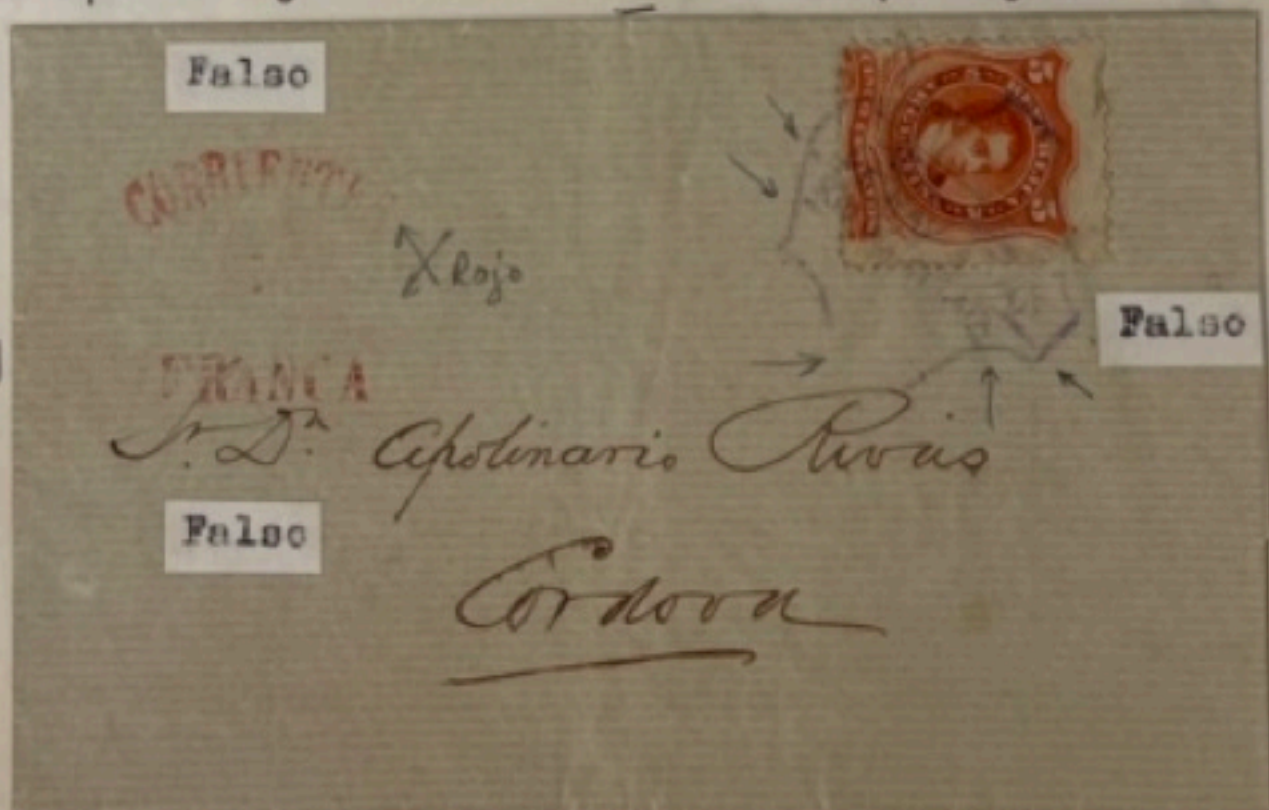 Falso
CORRIENTES
X Rojo
5 5
Falso
FRANCA
Sr. Dn. Apolinario Rivas
Falso
Córdova